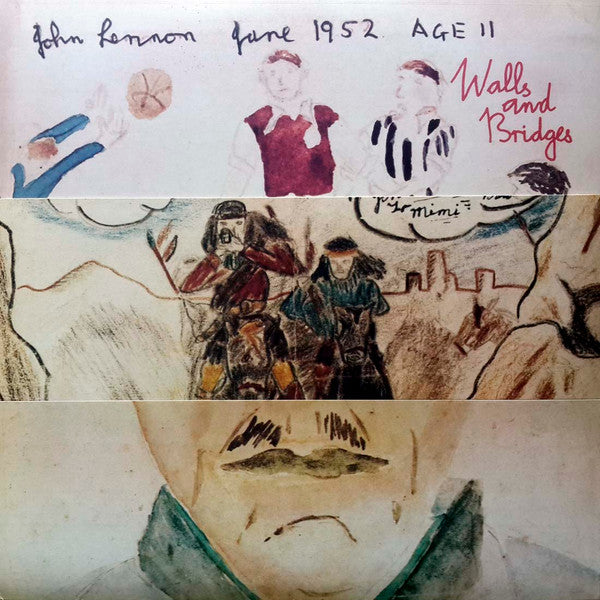 John Lennon June 1952 AGE 11
Walls
and
Bridges
Mimi